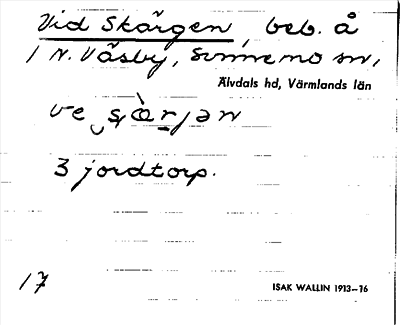 Vid Skärgen, beb. å
1 N. Väsby, Sunnemo sn,
Älvdals hd, Värmlands län
ve ʂæ̀rjən
3 jordtorp.
17
ISAK WALLIN 1913–16